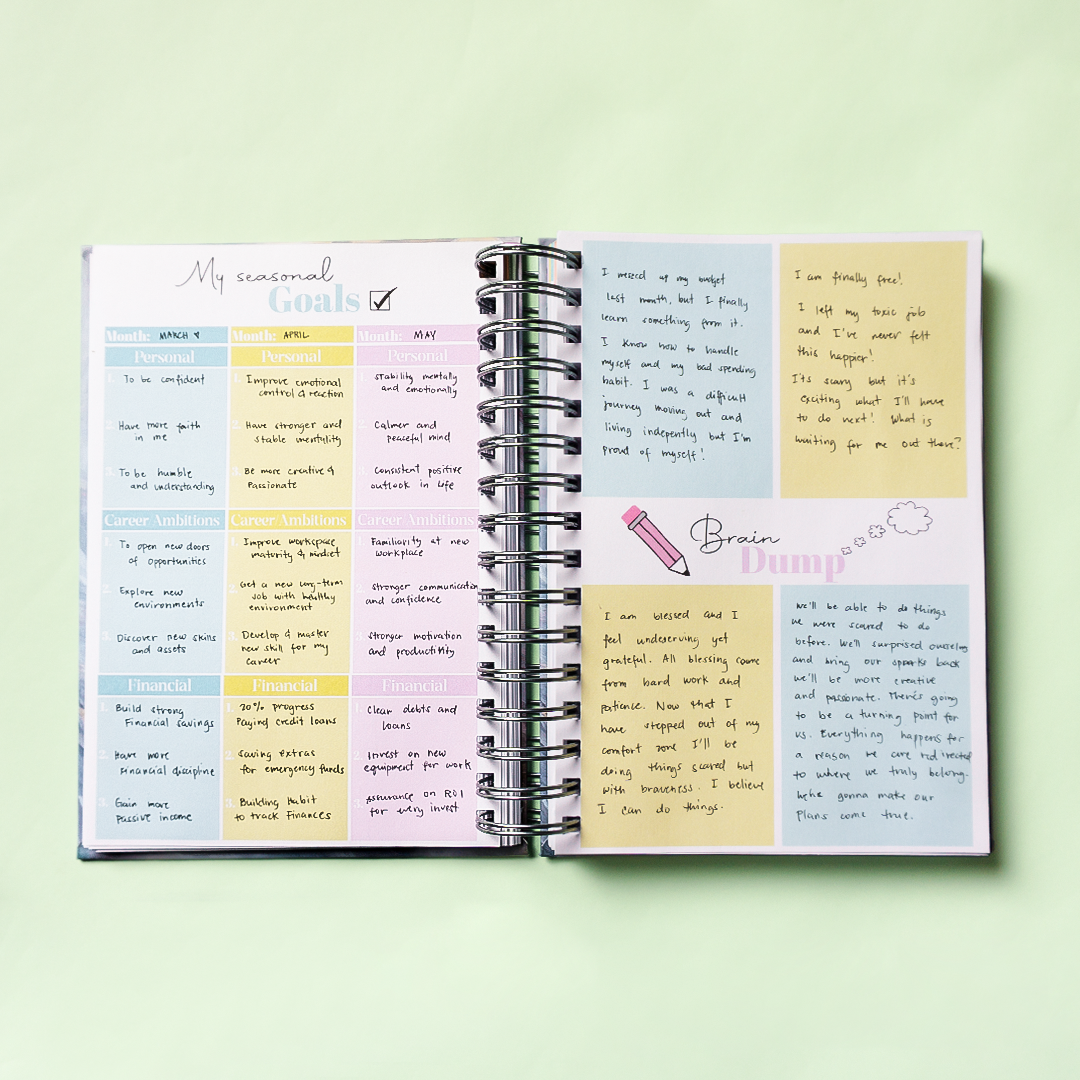 My seasonal
Goals
Month: MARCH
Personal
1. To be confident
2. Have more faith
in me
3. To be humble
and understanding
Career Ambitions
1. To open new doors
of opportunities
2. Explore new
environments
3. Discover new skins
and assets
Financial
1. Build strong
Financial savings
2. Have more
Financial discipline
3. Gain more
Passive income
Month: APRIL
Personal
1. Improve emotional
control & reaction
2. Have stronger and
stable mentality
3. Be more creative &
Passionate
Career Ambitions
1. Improve workspace
maturity & mindset
2. Get a new long-term
job with healthy
environment
3. Develop & master
new skill for my
career
Financial
1. 20% progress
Paying credit loans
2. Saving extras
for emergency funds
3. Building Habit
to track Finances
Month: MAY
Personal
1. Stability mentally
and emotionally
2. Calmer and
peaceful mind
3. Consistent positive
outlook in life
Career Ambitions
1. Familiarity at new
workplace
2. Stronger communication
and confidence
3. Stronger motivation
and productivity
Financial
1. Clear debts and
loans
2. Invest on new
equipment for work
3. Assurance on ROI
for every invest
I messed up my budget
last month, but I finally
learn something from it.
I know how to handle
myself and my bad spending
habit. I was a difficult
journey moving out and
living indepently but I'm
proud of myself!
I am finally free!
I left my toxic job
and I've never felt
this happier!
It's scary but it's
exciting what I'll have
to do next! What is
waiting for me out there?
Brain
Dump
I am blessed and I
feel undeserving yet
grateful. All blessing come
from hard work and
patience. Now that I
have stepped out of my
comfort zone I'll be
doing things scared but
with braveness. I believe
I can do things.
We'll be able to do things
we were scared to do
before. We'll surprised ourselves
and bring our sparks back
we'll be more creative
and passionate. There's going
to be a turning point for
us. Everything happens for
a reason we are redirected
to where we truly belong.
We're gonna make our
plans come true.